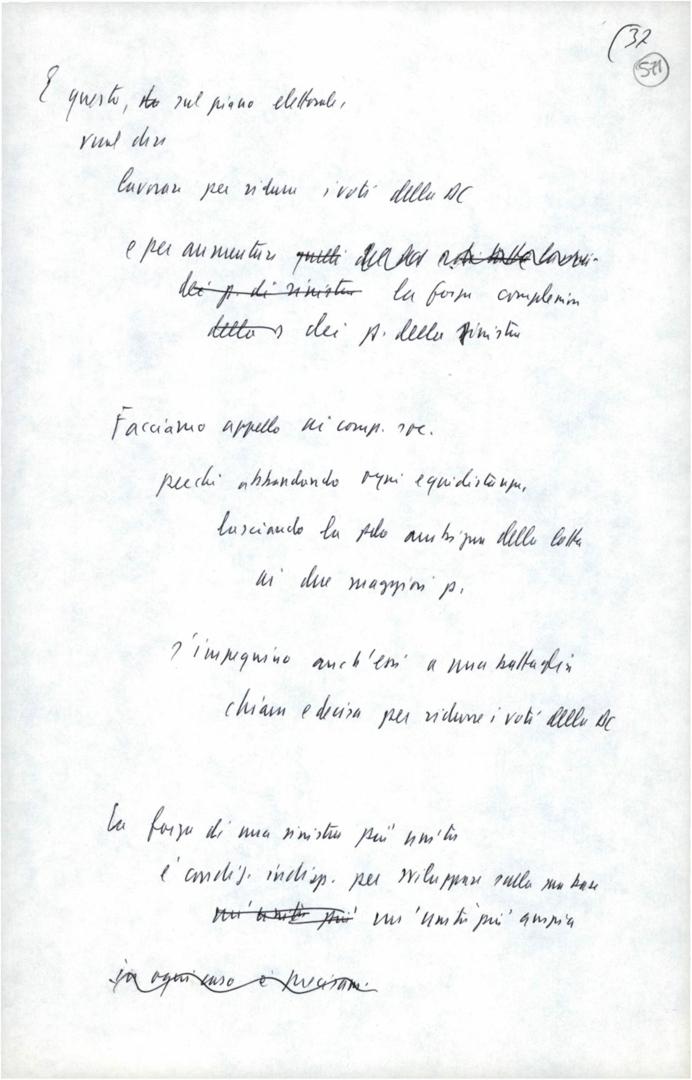 (37
571
E questo, sul piano elettorale,
vuol dire
lavorare per ridurre i voti della DC
e per aumentare quelli del Pci
dei p. di sinistra la forza complessiva
della s dei p. della sinistra
Facciamo appello ai comp. soc.
perché abbandonando ogni equidistanza,
lasciando la ambigua della lotta
ai due maggiori p.
s'impegnino anch'essi a una battaglia
chiara e decisa per ridurre i voti della DC
La forza di una sinistra più unita
è condiz. indisp. per sviluppare sulla sua base
un'unità più un'unità più ampia
in ogni caso è